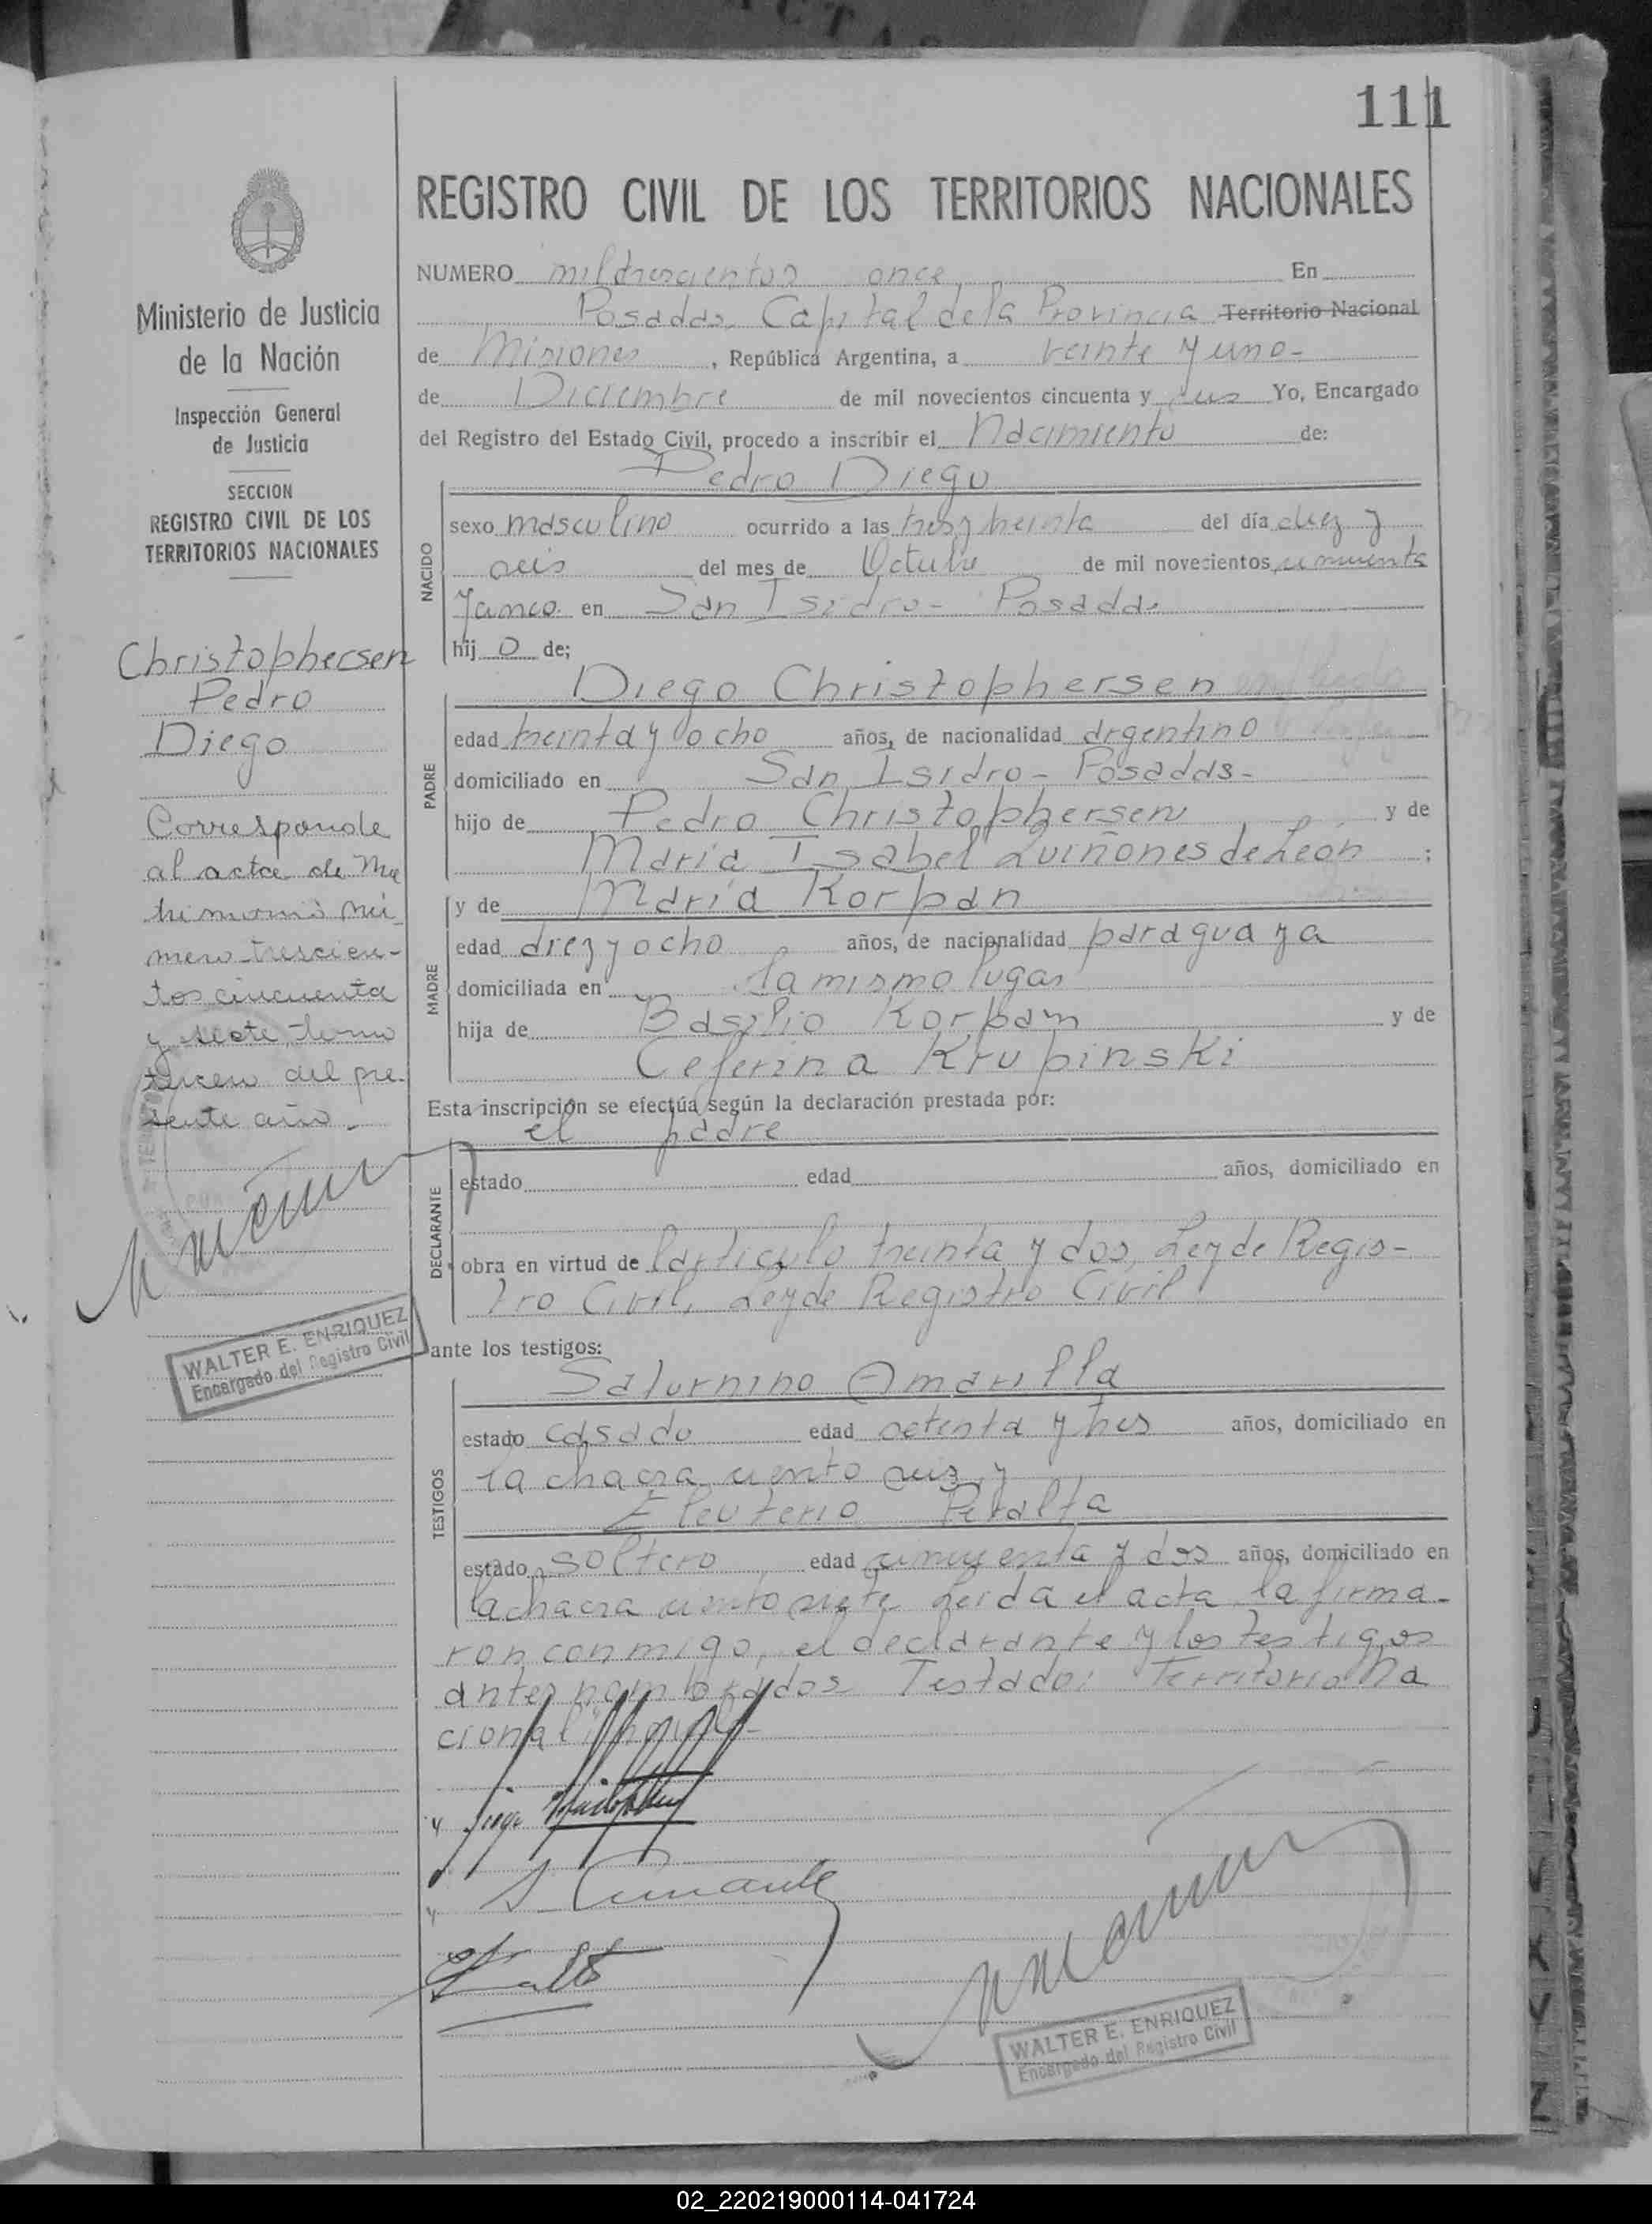 111
REGISTRO CIVIL DE LOS TERRITORIOS NACIONALES
Ministerio de Justicia
de la Nación
Inspección General
de Justicia
SECCION
REGISTRO CIVIL DE LOS
TERRITORIOS NACIONALES
Christophersen
Pedro
Diego
Corresponde
al acta de Ma
trimonio nú
mero trescien-
tos cincuenta
y siete, tomo
tercero del pre-
sente año.
WALTER E. ENRIQUEZ
Encargado del Registro Civil
NUMERO once En
Posadas, Capital de la Provincia Territorio Nacional
de Misiones, República Argentina, a veinte y uno-
de Diciembre de mil novecientos cincuenta y Yo, Encargado
del Registro del Estado Civil, procedo a inscribir el Nacimiento de:
Pedro Diego
NACIDO
sexo masculino ocurrido a las tres y treinta del día diez y
seis del mes de Octubre de mil novecientos cincuenta
y cinco en San Isidro- Posadas
hijo de;
PADRE
Diego Christophersen
edad treinta y ocho años, de nacionalidad argentino
domiciliado en San Isidro- Posadas-
hijo de Pedro Christophersen y de
María Isabel Quiñones de León ;
MADRE
y de María Korpan
edad diez y ocho años, de nacionalidad paraguaya
domiciliada en la mismo lugar
hija de Basilio Korpam y de
Ceferina Krupinski
Esta inscripción se efectúa según la declaración prestada por:
el padre
DECLARANTE
estado edad años, domiciliado en
obra en virtud de l'articulo treinta y dos, Ley de Regis-
tro Civil, Ley de Registro Civil
ante los testigos:
TESTIGOS
Saturnino Amarilla
estado casado edad setenta y tres años, domiciliado en
la chacra ciento seis y
Eleuterio Peralta
estado soltero edad cincuenta y dos años, domiciliado en
la chacra ciento siete Leida el acta la firma-
ron conmigo, el declarante y los testigos
antes nombrados Testado: Territorio Na
cional
WALTER E. ENRIQUEZ
Encargado del Registro Civil
02_220219000114-041724